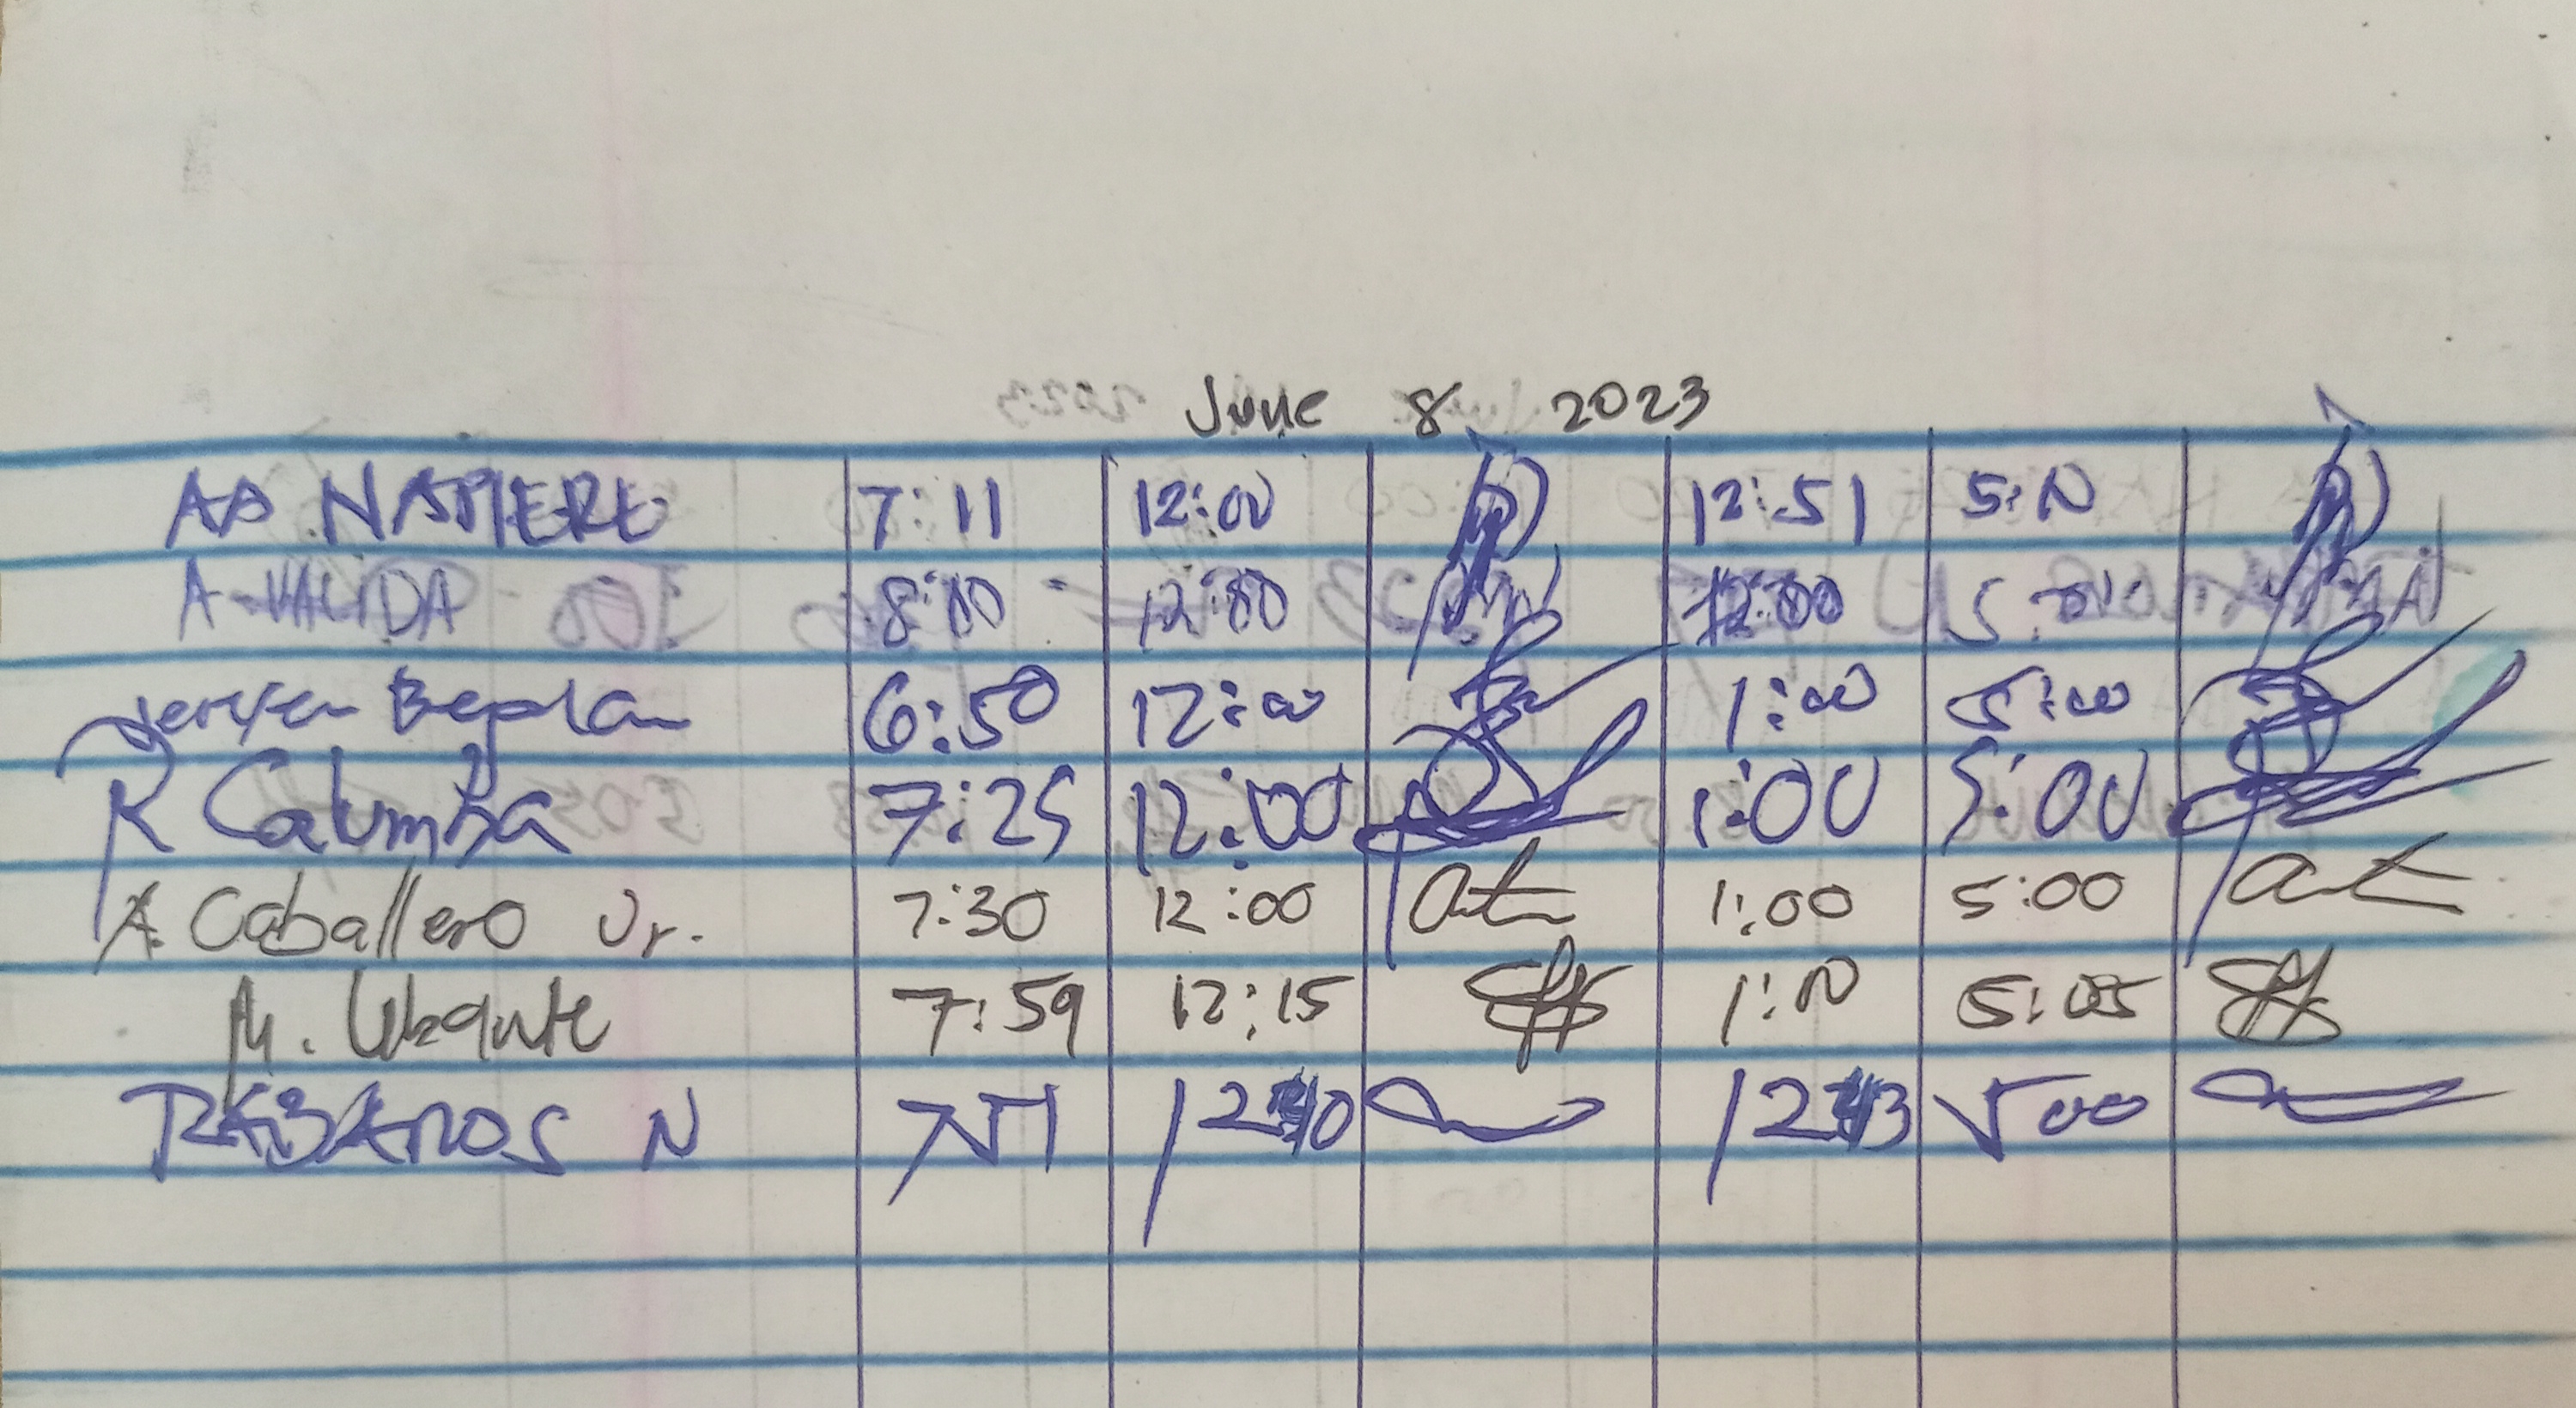 June 8 2023
AA NAPIERE 7:11 12:00 12:51 5:00
A-VALIDA 8:00 12:00 12:00 5:00
Beplan 6:50 12:00 1:00 5:00
R Catumba 7:25 12:00 1:00 5:00
A. Caballero Jr. 7:30 12:00 1:00 5:00
M. 7:59 12:15 1:00 5:05
N 751 12 12 500